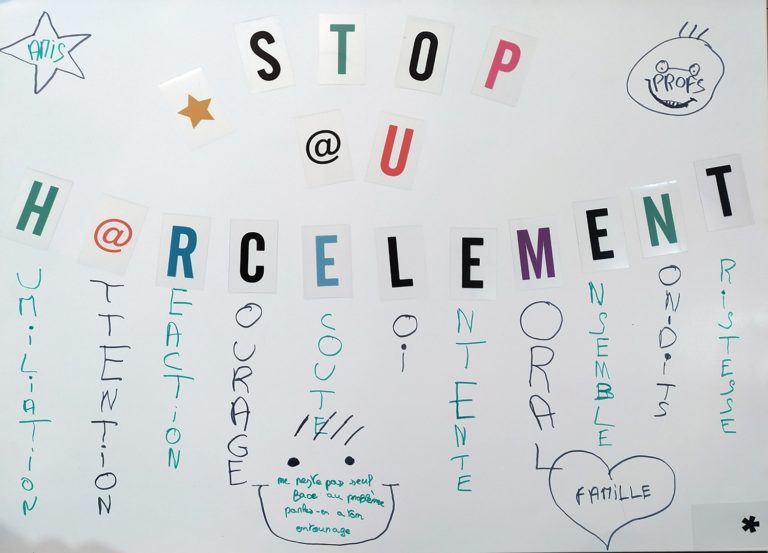 AMIS
STOP
PROFS
@U
H@RCELEMENT
UMiLiATiON
TTENTiON
EACTiON
OURAGE
COUTE
Oi
NTENTE
ORAL
NSEMBLE
ONDiTS
RiSTESSE
ne reste pas seul
face au problème
parles-en a ton
entourage
FAMILLE
*